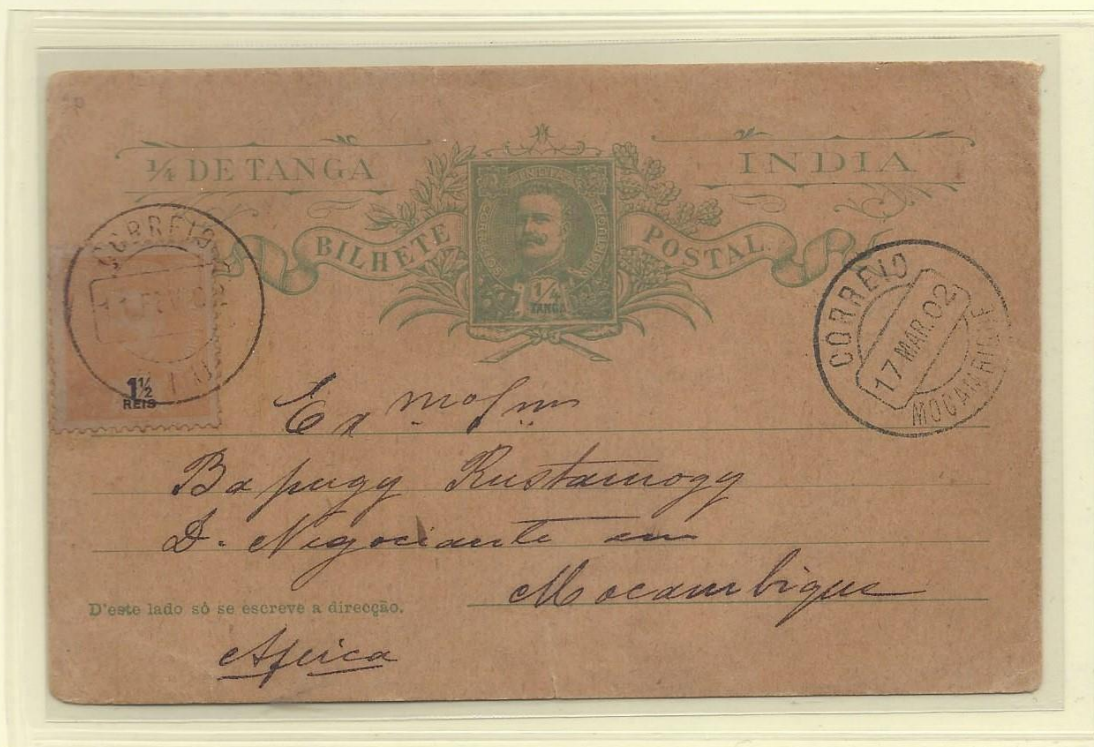 ¼ DE TANGA
INDIA
BILHETE POSTAL
INDIA
CORREIOS
¼
TANGA
CORREIO
1½
REIS
CORREIO
17 MAR. 02
MOÇAMBIQUE
Exmo Snr
Bapugy Rustamogy
D. Negociante em
Mocambique
D'este lado só se escreve a direcção.
Africa